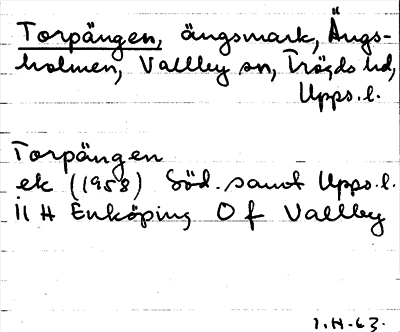 Torpängen, ängsmark, Ängs-
holmen, Vallby sn, Trögds hd,
Upps. l.
Torpängen
ek (1958) Söd. samt Upps. l.
II H Enköping O f Vallby
I.H-63.